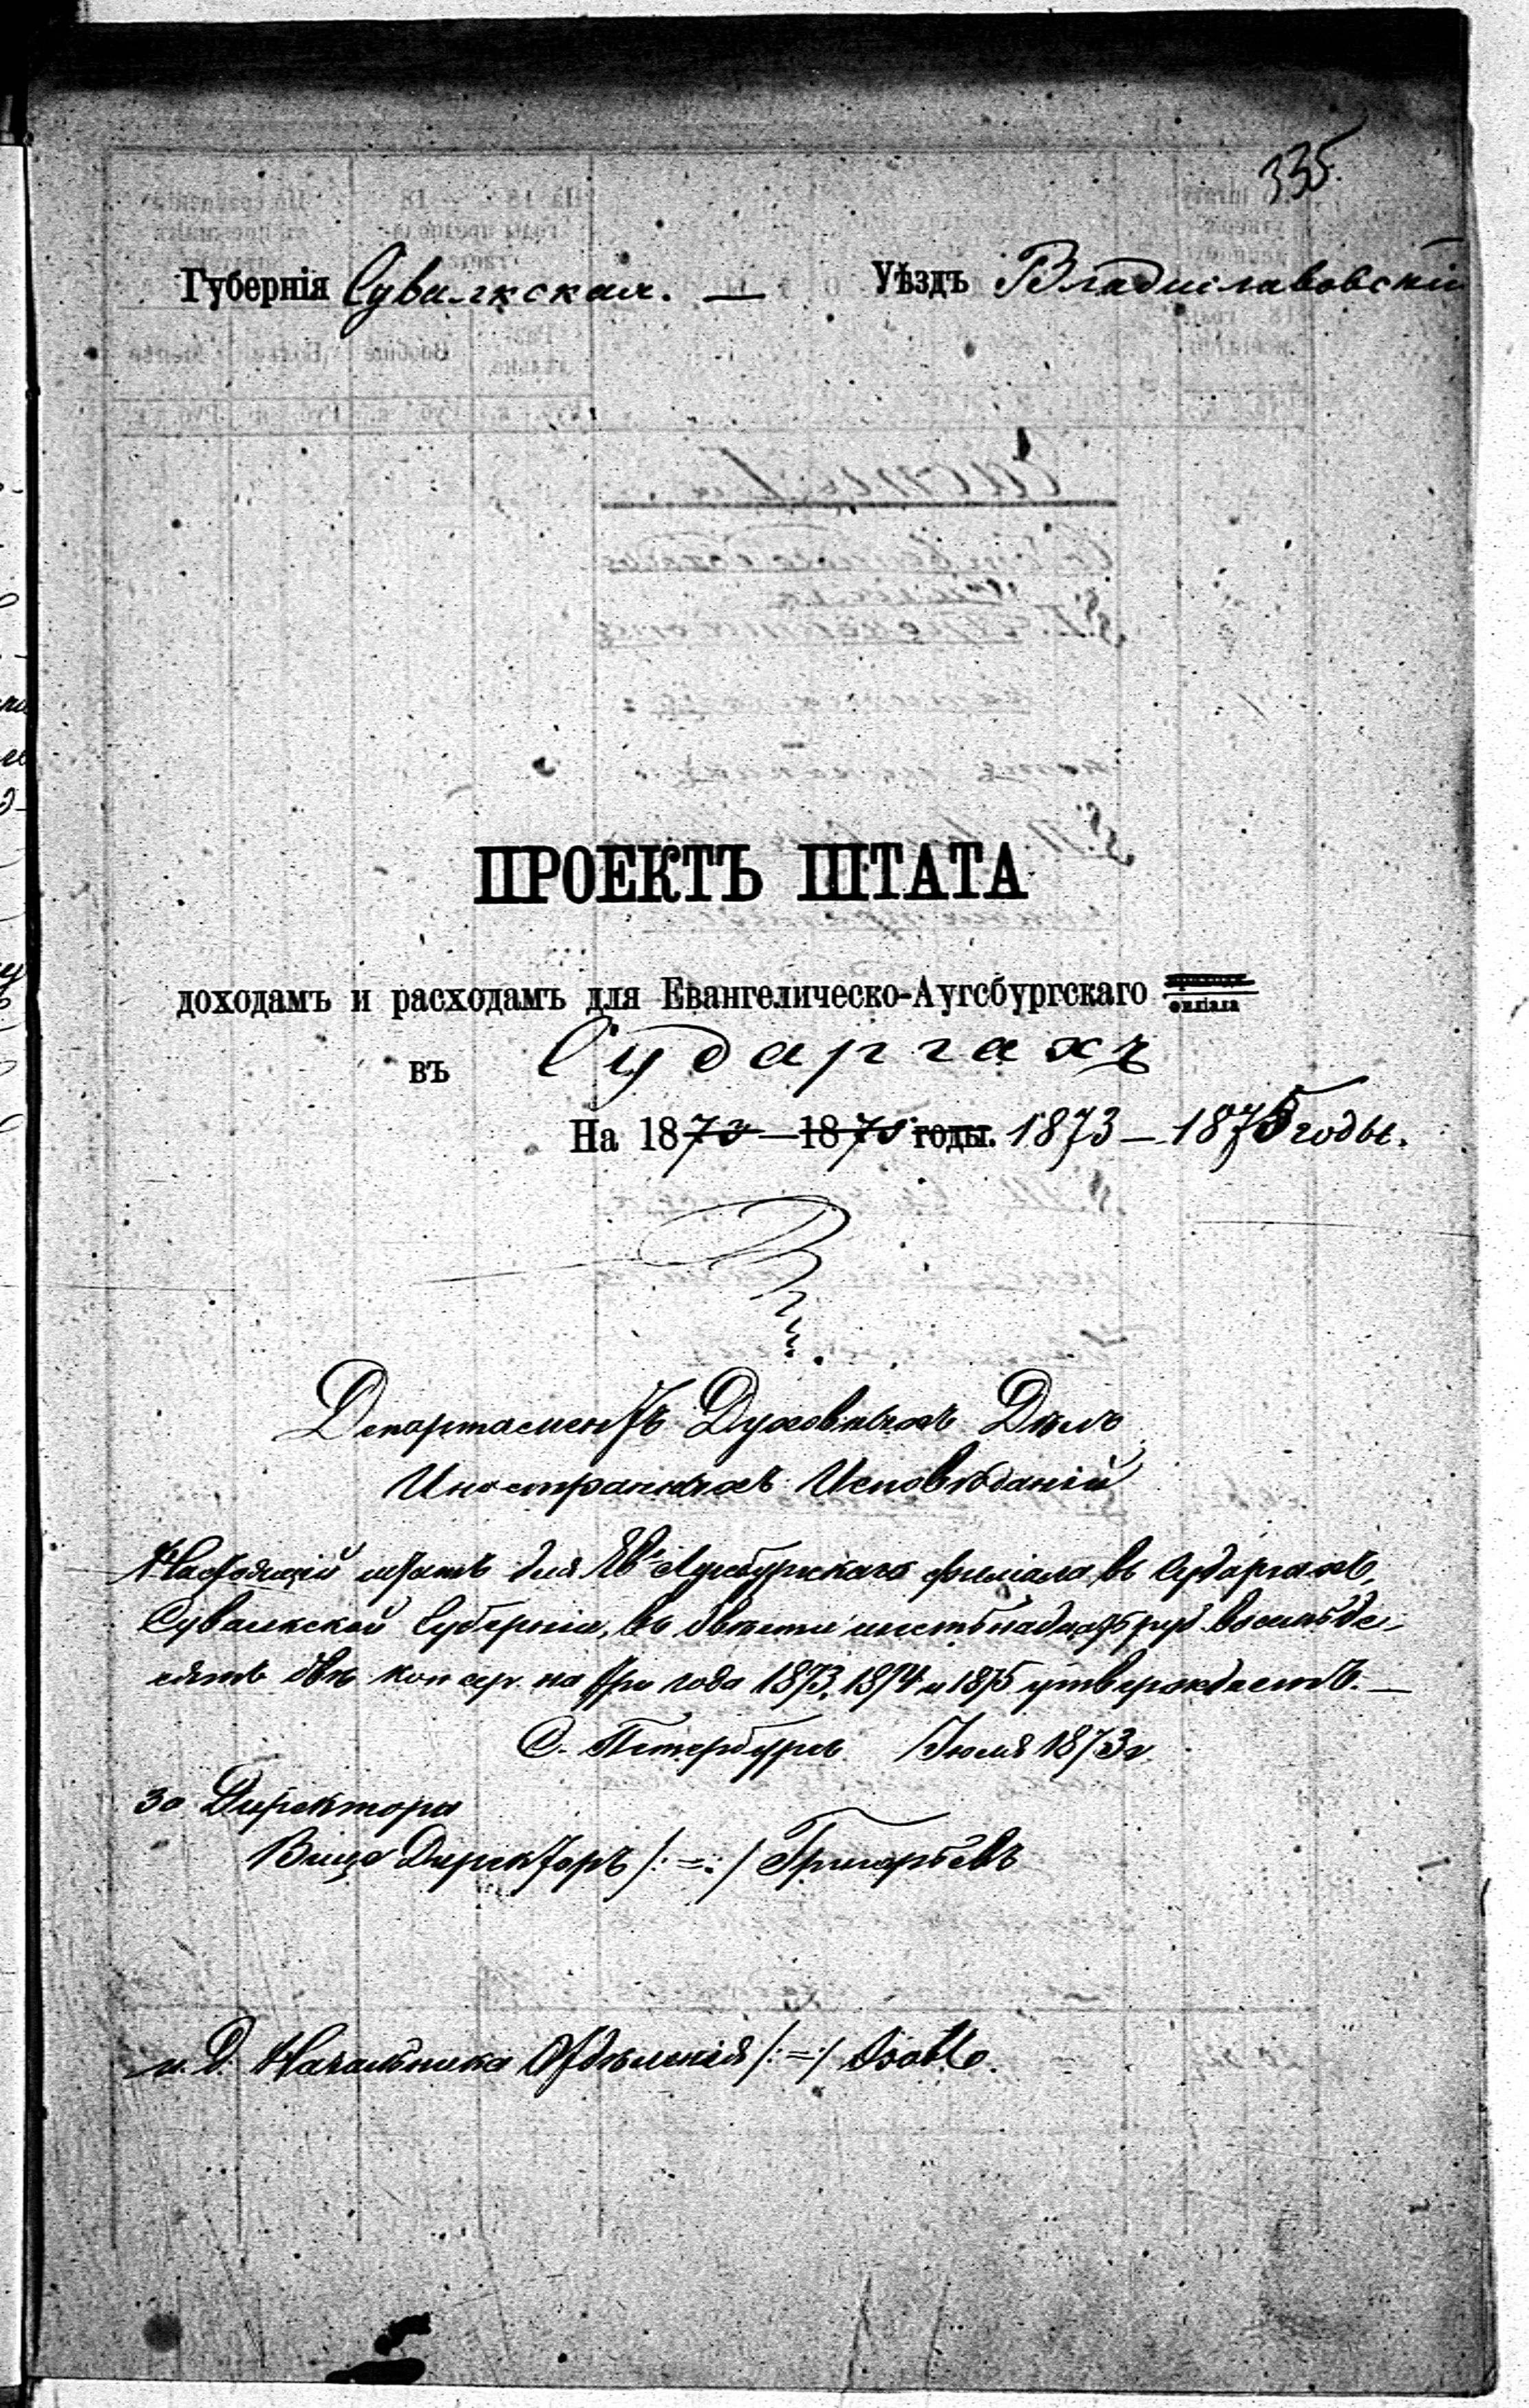 335.
Губернія Сувалкская. — Уѣздъ Владиславовскій
ПРОЕКТЪ ШТАТА
доходамъ и расходамъ для Евангелическо-Аугсбургскаго прихода филіала
въ Сударгахъ
На 1873—1875 годы. 1873—1875 годы.
Департаментъ Духовныхъ Дѣлъ
Иностранныхъ Исповѣданій
Настоящій штатъ для Ев. Аугсбургскаго филіала въ Сударгахъ,
Сувалкской Губерніи, въ двѣсти шестьнадцать руб. восемьде-
сятъ двѣ коп сер. на три года 1873, 1874 и 1875 утверждаетъ. —
С. Петербургъ Іюля 1873 г.
За Директора
Вице Директоръ /:=:/ Григорьевъ
и. д. Начальника Отдѣленія /:=:/